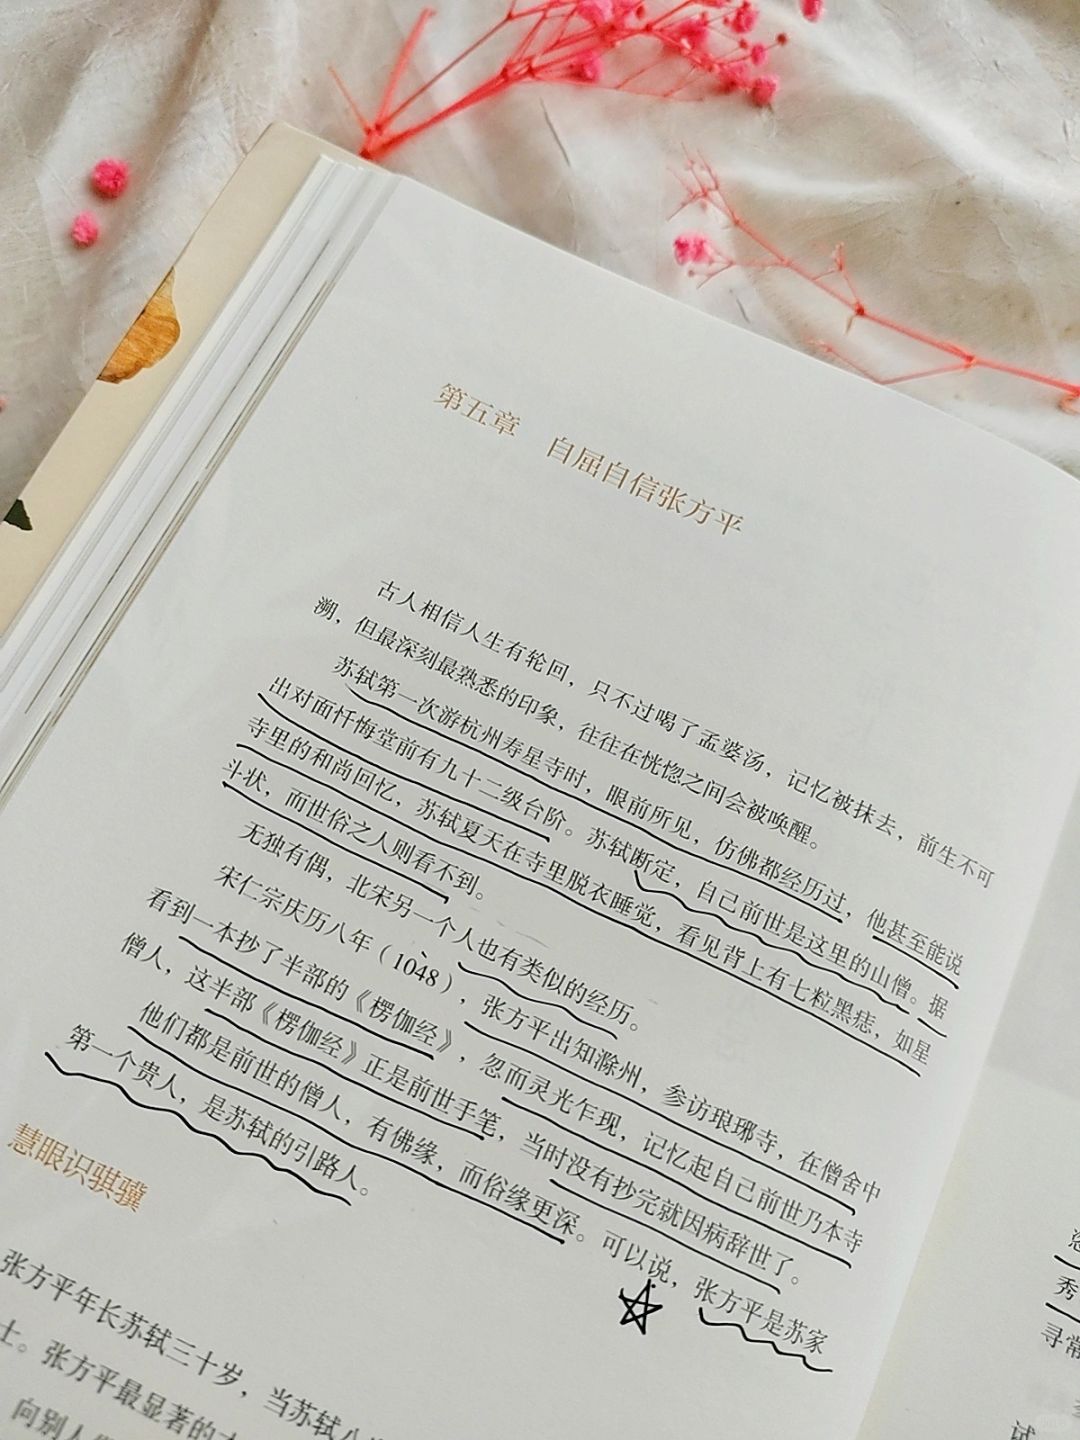 第五章 自屈自信张方平
古人相信人生有轮回，只不过喝了孟婆汤，记忆被抹去，前生不可
溯，但最深刻最熟悉的印象，往往在恍惚之间会被唤醒。
苏轼第一次游杭州寿星寺时，眼前所见，仿佛都经历过，他甚至能说
出对面忏悔堂前有九十二级台阶。苏轼断定，自己前世是这里的山僧。据
寺里的和尚回忆，苏轼夏天在寺里脱衣睡觉，看见背上有七粒黑痣，如星
斗状，而世俗之人则看不到。
无独有偶，北宋另一个人也有类似的经历。
宋仁宗庆历八年（1048），张方平出知滁州，参访琅琊寺，在僧舍中
看到一本抄了半部的《楞伽经》，忽而灵光乍现，记忆起自己前世乃本寺
僧人，这半部《楞伽经》正是前世手笔，当时没有抄完就因病辞世了。
他们都是前世的僧人，有佛缘，而俗缘更深。可以说，张方平是苏家
第一个贵人，是苏轼的引路人。
慧眼识骐骥
张方平年长苏轼三十岁，当苏轼八
士。张方平最显著的
向别人
秀
寻常
试